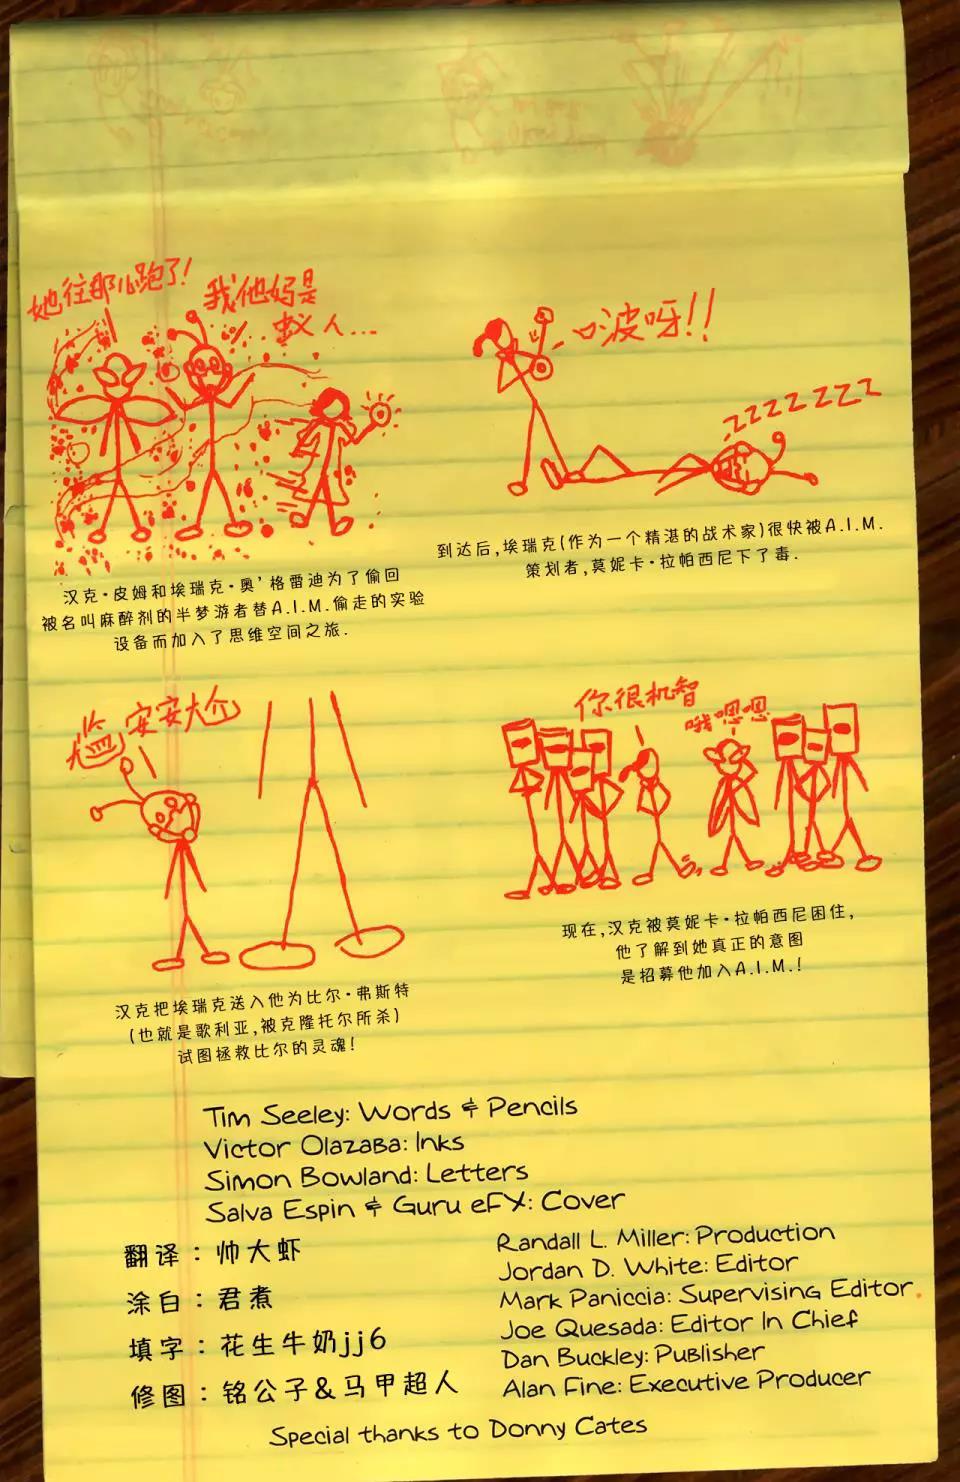 她往那儿跑了!
我他妈是
蚁人...
汉克·皮姆和埃瑞克·奥'格雷迪为了偷回
被名叫麻醉剂的半梦游者替A.I.M.偷走的实验
设备而加入了思维空间之旅.
啵呀!!
ZZZZZZZ
到达后,埃瑞克(作为一个精湛的战术家)很快被A.I.M.
策划者,莫妮卡·拉帕西尼下了毒.
尴安安大尬
汉克把埃瑞克送入他为比尔·弗斯特
(也就是歌利亚,被克隆托尔所杀)
试图拯救比尔的灵魂!
你很机智
哦嗯嗯
现在,汉克被莫妮卡·拉帕西尼困住,
他了解到她真正的意图
是招募他加入A.I.M.!
Tim Seeley: Words & Pencils
Victor Olazaba: Inks
Simon Bowland: Letters
Salva Espin & Guru eFX: Cover
翻译：帅大虾
涂白：君煮
填字：花生牛奶jj6
修图：铭公子&马甲超人
Randall L. Miller: Production
Jordan D. White: Editor
Mark Paniccia: Supervising Editor.
Joe Quesada: Editor In Chief
Dan Buckley: Publisher
Alan Fine: Executive Producer
Special thanks to Donny Cates